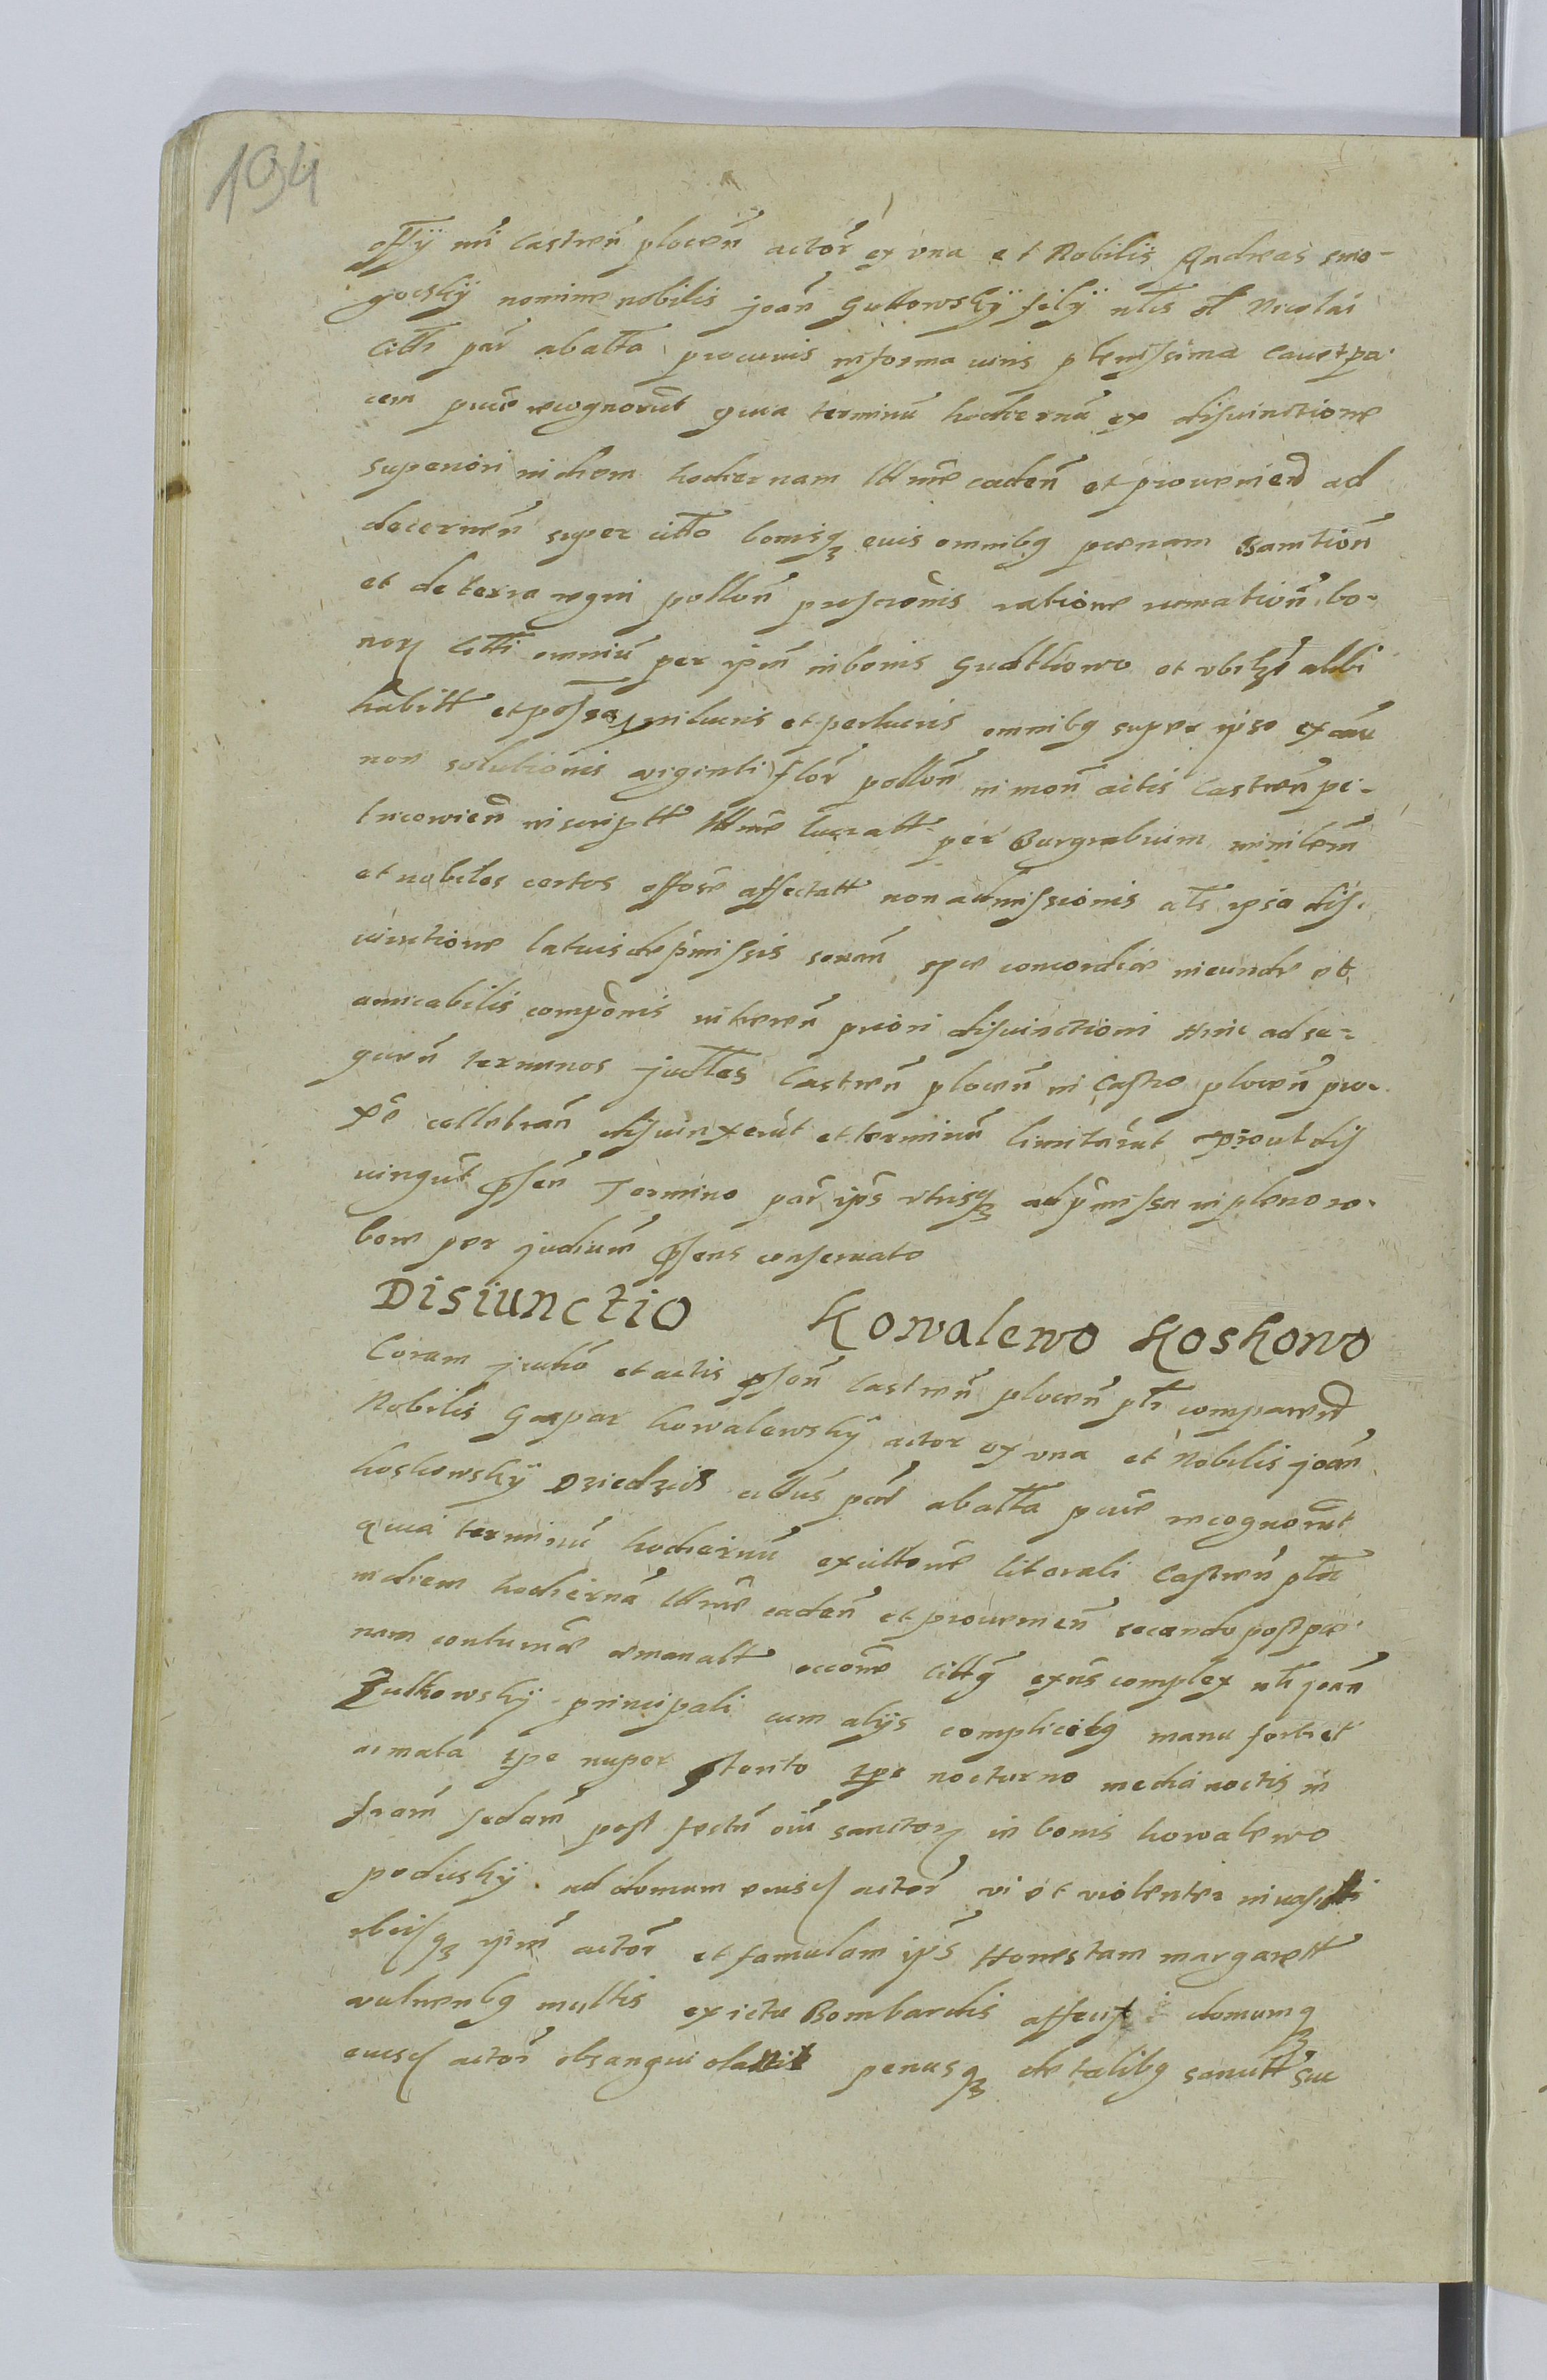 194
offÿ nri Castren plocen actor ex vna et Nobilis Andreas smo-
gorskÿ nomine nobilis joan Guttowskÿ filÿ nlis ol Nicolai
citti par abatta procuris in forma iuris plenissima cauet pa
cem pure recognorut quia terminu hodiernu ex disiunctione
superiori in diem hodiernam Ittime caden et prouenien ad
decernen super citto bonisq eius omnibq poenam Banition
et de terra regni pollon proscronis ratione rumation bo-
nor citti omniu per ipm in bonis Gudthowo et vbiq alibi
habitt et possa in lucris et perlucris omnibq super ipso ex cau
non solutionis viginti flor pollon in mon actis Castren pe-
tricovien inscriptt Ittime lucratt per Burgrabium ministem
et nobiles certos offose affectatt non admissionis als ipsa dis-
iunctione latius de pmissis sonan spe concordiae ineunde et
amicabilis componis inheren priori disiunctioni hinc ad se-
quen terminos judles Castren plocen in Castro plocen pro-
xe cellebran disiunxerut et terminu limitarut prout dis
iungut psen Termino par ips vtrisq ad pmissa in pleno ro-
bore per judium psens conseruato
Disiunctio Kowalewo Koskowo
Coram judio et actis psen Castren plocen plr comparen
Nobilis Gaspar Kowalewskÿ actor ex vna et Nobilis joan
Koskowskÿ Dziedzic cittus par abatta pure recognorut
quia terminu hodiernu ex cittone literali Castren plo
in diem hodierna Ittime caden et prouenien secundo post poe-
nam contumae emanatt occone citty exns complex nli joan
Zutkowskÿ principali cum alÿs complicibq manu forti et
armata tpe nuper ptento tpe nocturno media noctis in
fram sedam post festu oiu sanctor in bonis kowalewo
poduskÿ ad domum eiusd actor vi et violenter inuasitti
ibiq ipm actor et famulam ips Honestam margarett
vulnerbq multis ex ictu Bombardis affecit domumq
eiusd actor obsangui penusq de talibq sanutt suc